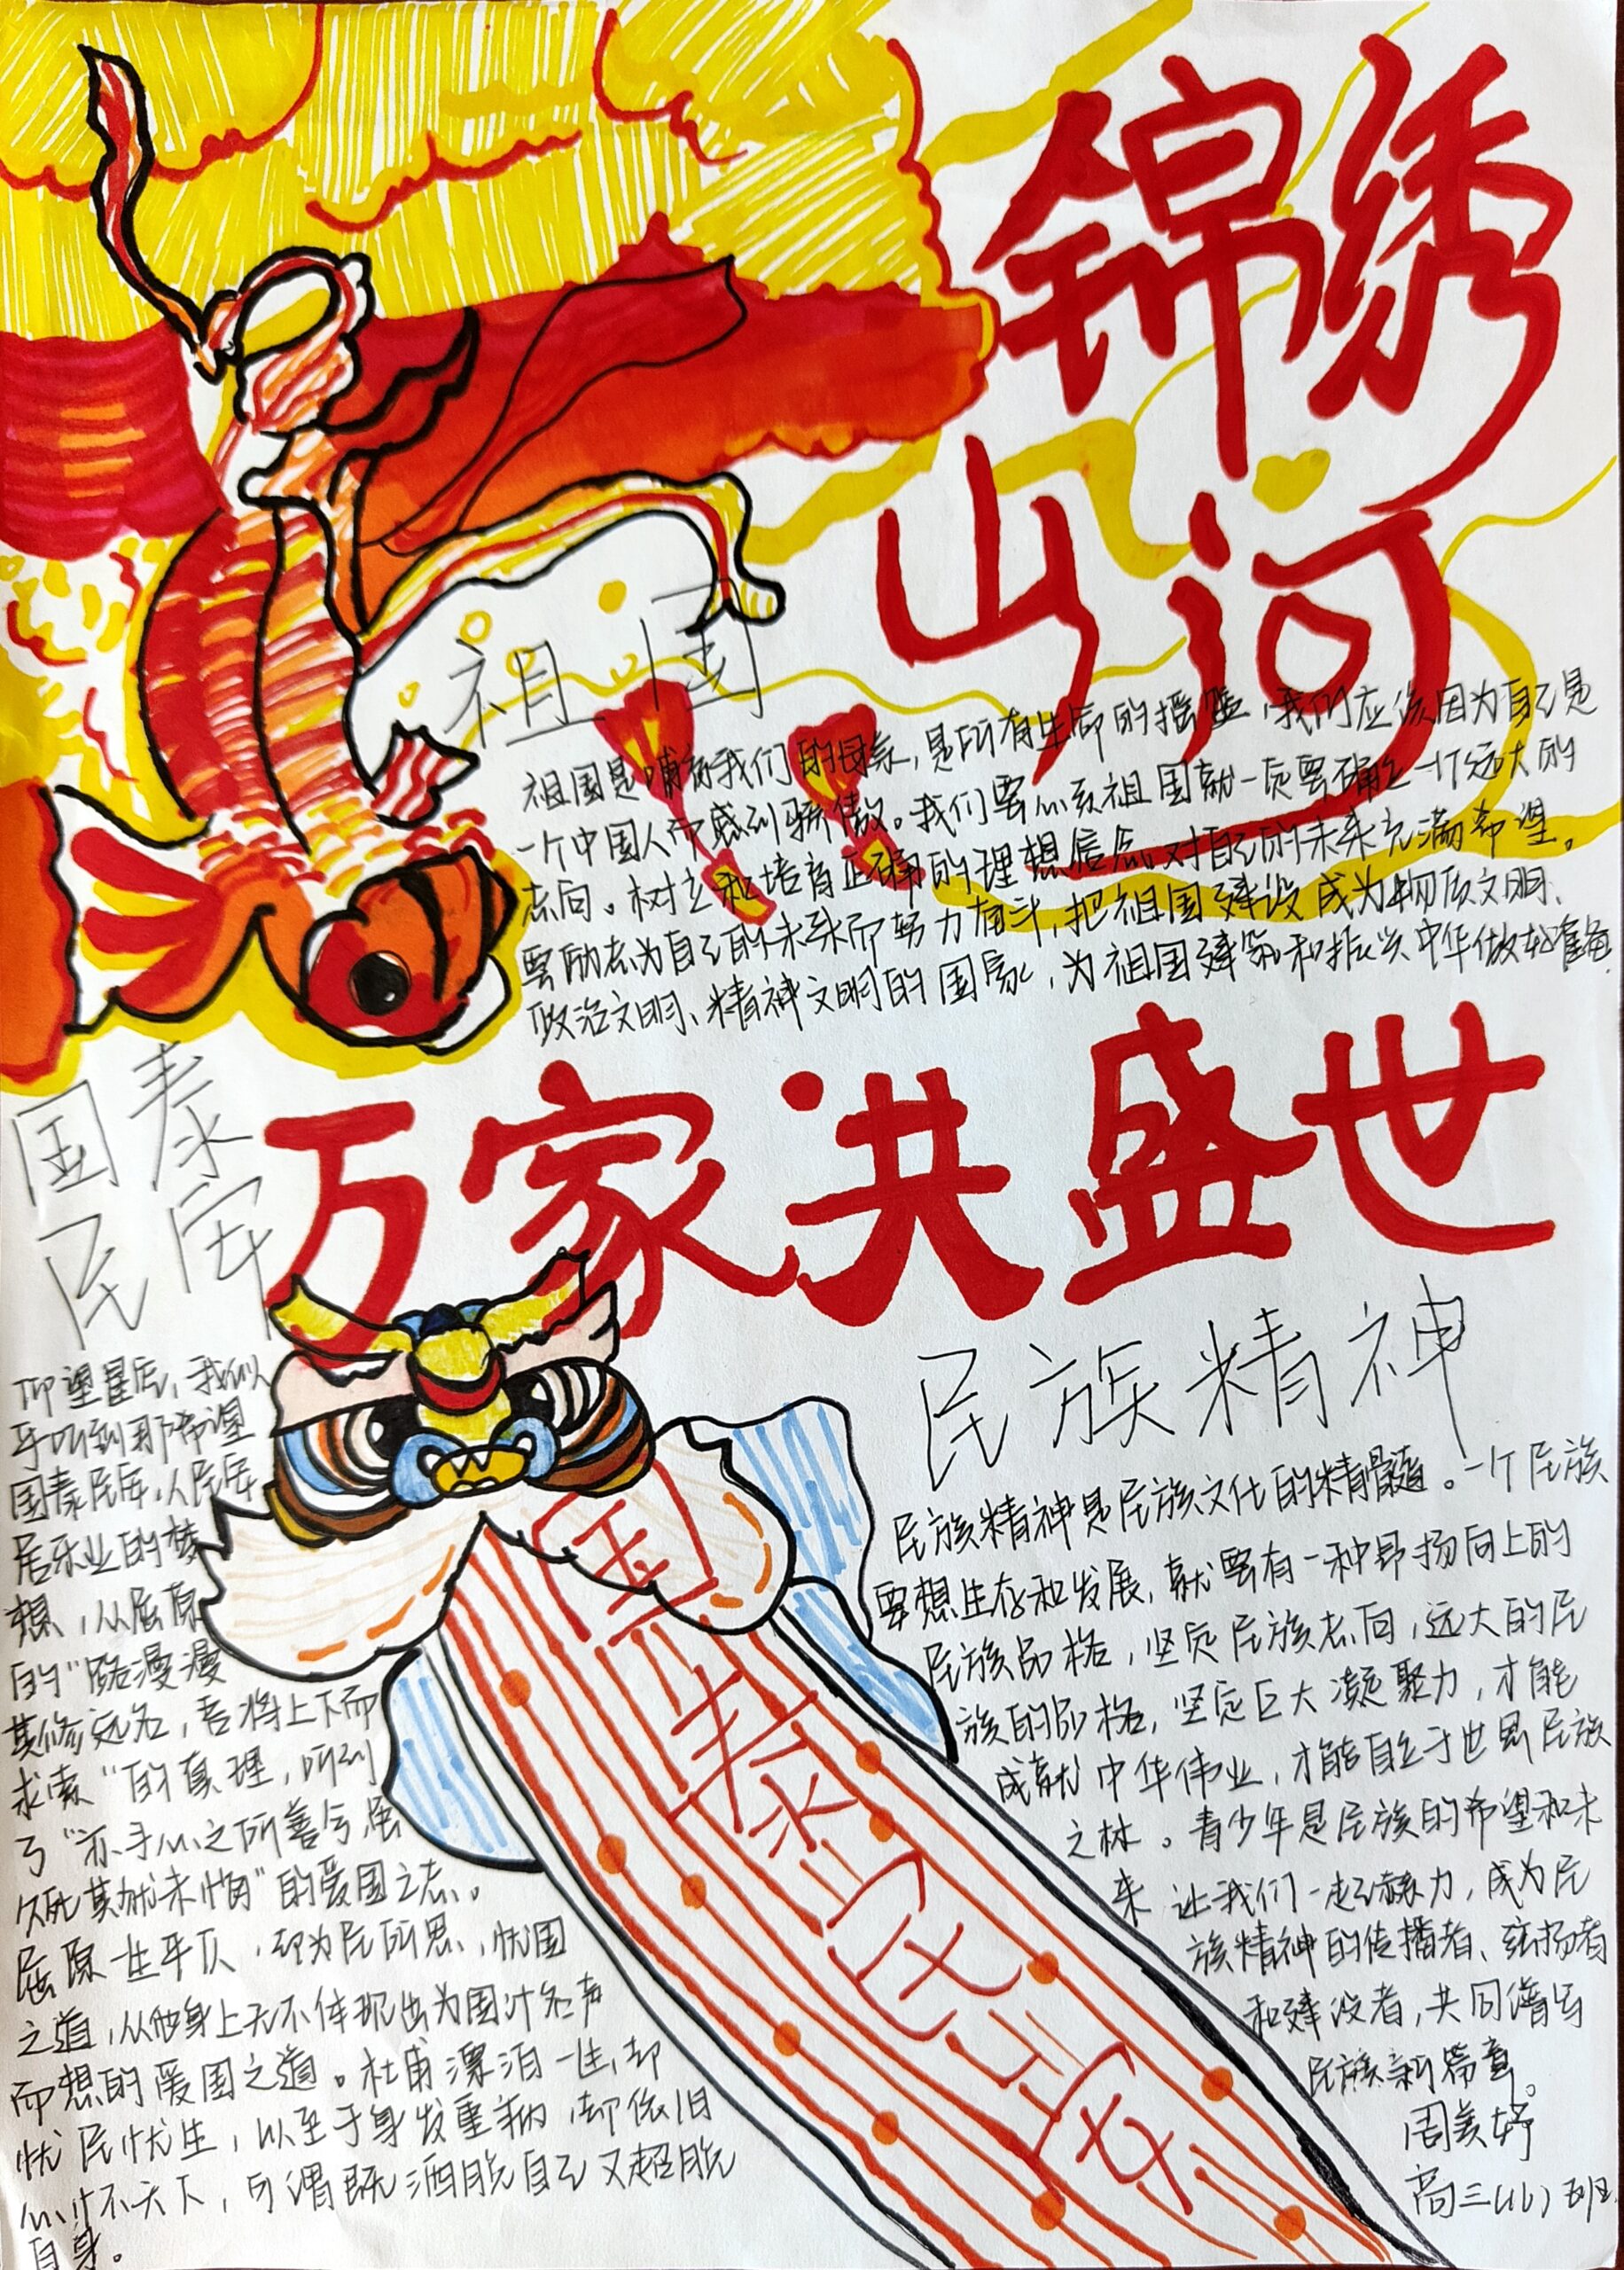 锦绣
山河
祖国
祖国是哺育我们的母亲，是所有生命的摇篮，我们应该因为自己是
一个中国人而感到骄傲。我们要心系祖国就一定要确立一个远大的
志向。树立和培育正确的理想信念，对自己的未来充满希望。
要励志为自己的未来而努力奋斗，把祖国建设成为物质文明、
政治文明、精神文明的国家，为祖国建筑和振兴中华做好准备
万家共盛世
国泰
民安
仰望星辰，我似
乎听到那希望
国泰民安，人民安
居乐业的梦
想，从屈原
的“路漫漫
其修远兮，吾将上下而
求索”的真理，听到
了“亦予心之所善兮，虽
九死其犹未悔”的爱国之志。
屈原一生平仄，却为民所思，忧国
之道，从他身上无不体现出为国
而想的爱国之道。杜甫漂泊一生，却
忧民忧生，以至于身发重病，却依旧
心怀天下，可谓既洒脱自己又超脱
自身。
国泰民安
民族精神
民族精神是民族文化的精髓。一个民族
要想生存和发展，就要有一种昂扬向上的
民族品格，坚定民族志向，远大的民
族的品格，坚定巨大凝聚力，才能
成就中华伟业，才能自立于世界民族
之林。青少年是民族的希望和未
来 让我们一起努力，成为民
族精神的传播者、弘扬者
和建设者，共同谱写
民族新篇章。
周美妤
高三(16)班